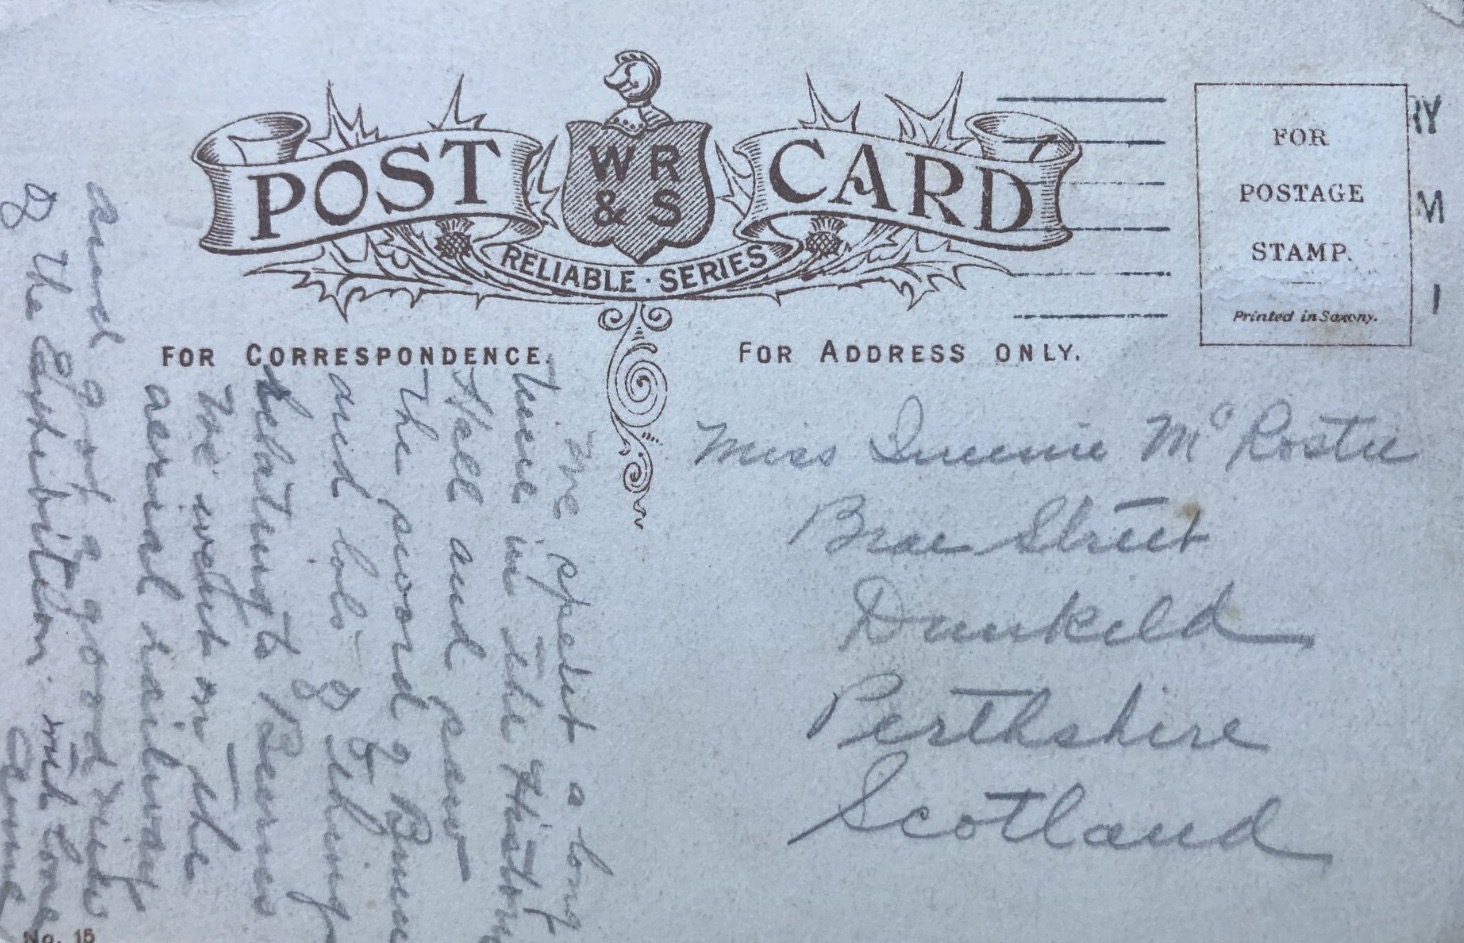 POST CARD
WR
& S
RELIABLE · SERIES
FOR CORRESPONDENCE.
FOR ADDRESS ONLY.
FOR
POSTAGE
STAMP.
Printed in Saxony.
We spent a long
time in the History
Hall and saw
the sword of Bruce
and lots of things
relating to Burns
We went on the
aerial railway
and got a good view
of the Exhibition. with love
Miss McRostie
Brae Street
Dunkeld
Perthshire
Scotland
No. 15